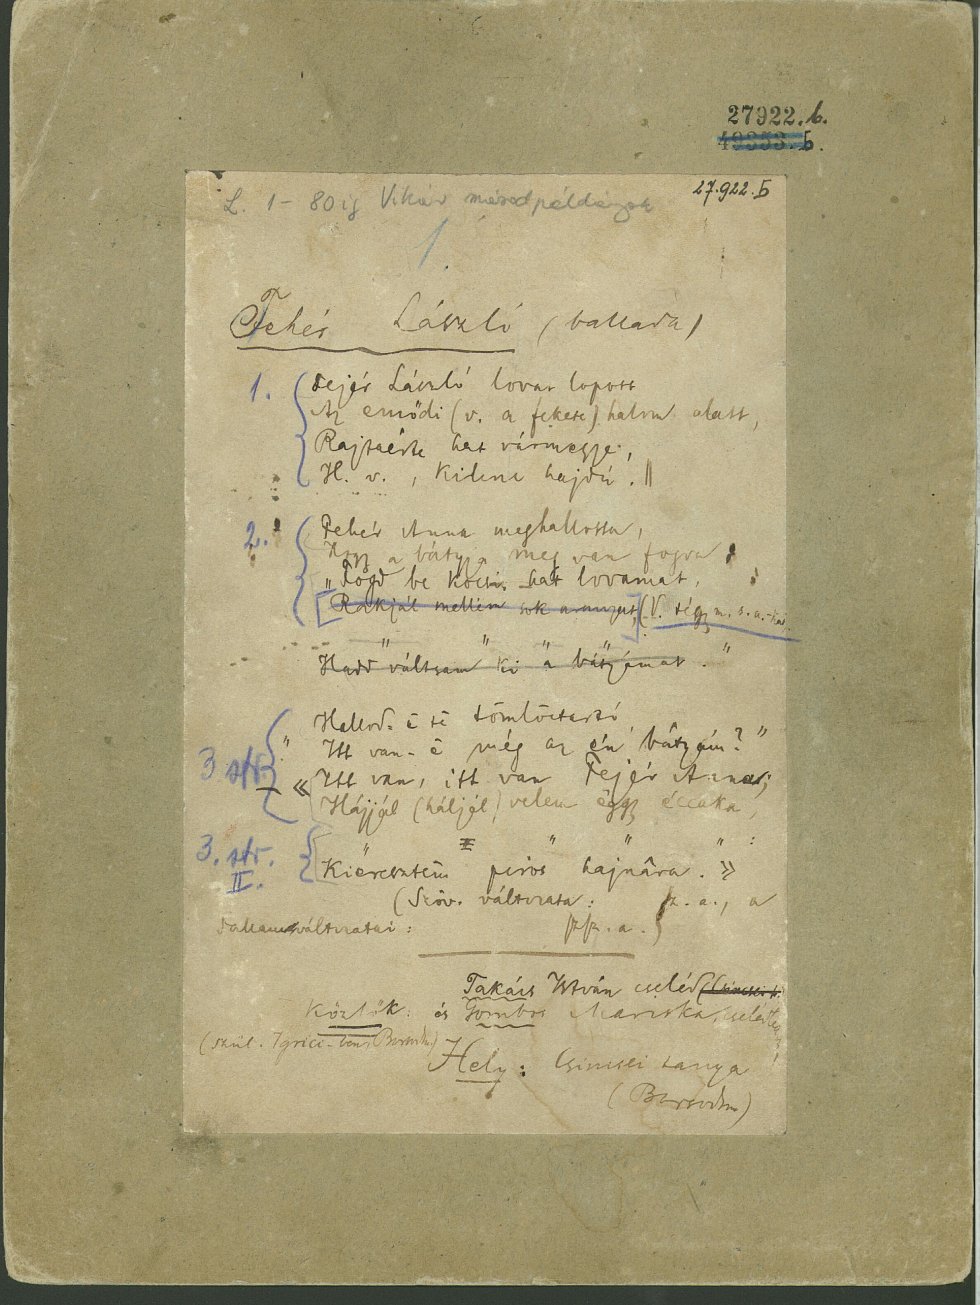 27922.b.
49353.b.
27.922.b
L. 1-80ig Vikár másodpéldányok
1
Fehér László (ballada)
1. Fejér László lovat lopott
Az emődi (v. a fekete) halom alatt,
Rajtaérte hat vármegye,
H. v., kilenc hajdú. ||
2. Fehér Anna meghallotta,
Hogy a bátyja meg van fogva:
"Fogd be kocsis hat lovamat,
[Rakjál mellém sok aranyat,] (V. tégy m. s. a.-hat.
" " " "
Hadd váltsam ki a bátyámat."
Hallod-ē tē tömlöctartó,
3 str. "Itt van-ē még az én bátyám?"
«Itt van, itt van Fejér Anna;
Hájjál (háljál) velem ēggy éccaka,
3. str. II. " " " " :
Kieresztēm piros hajnâra.»
(Szöv. változata: z. a., a
dallam változatai: zz. a.)
Takács István cseléd
Közlők: és Gombos Mariska, cselédleány
(szül. Igrici-ben, Borsodm.)
Hely: Csincsei tanya
(Borsodm)